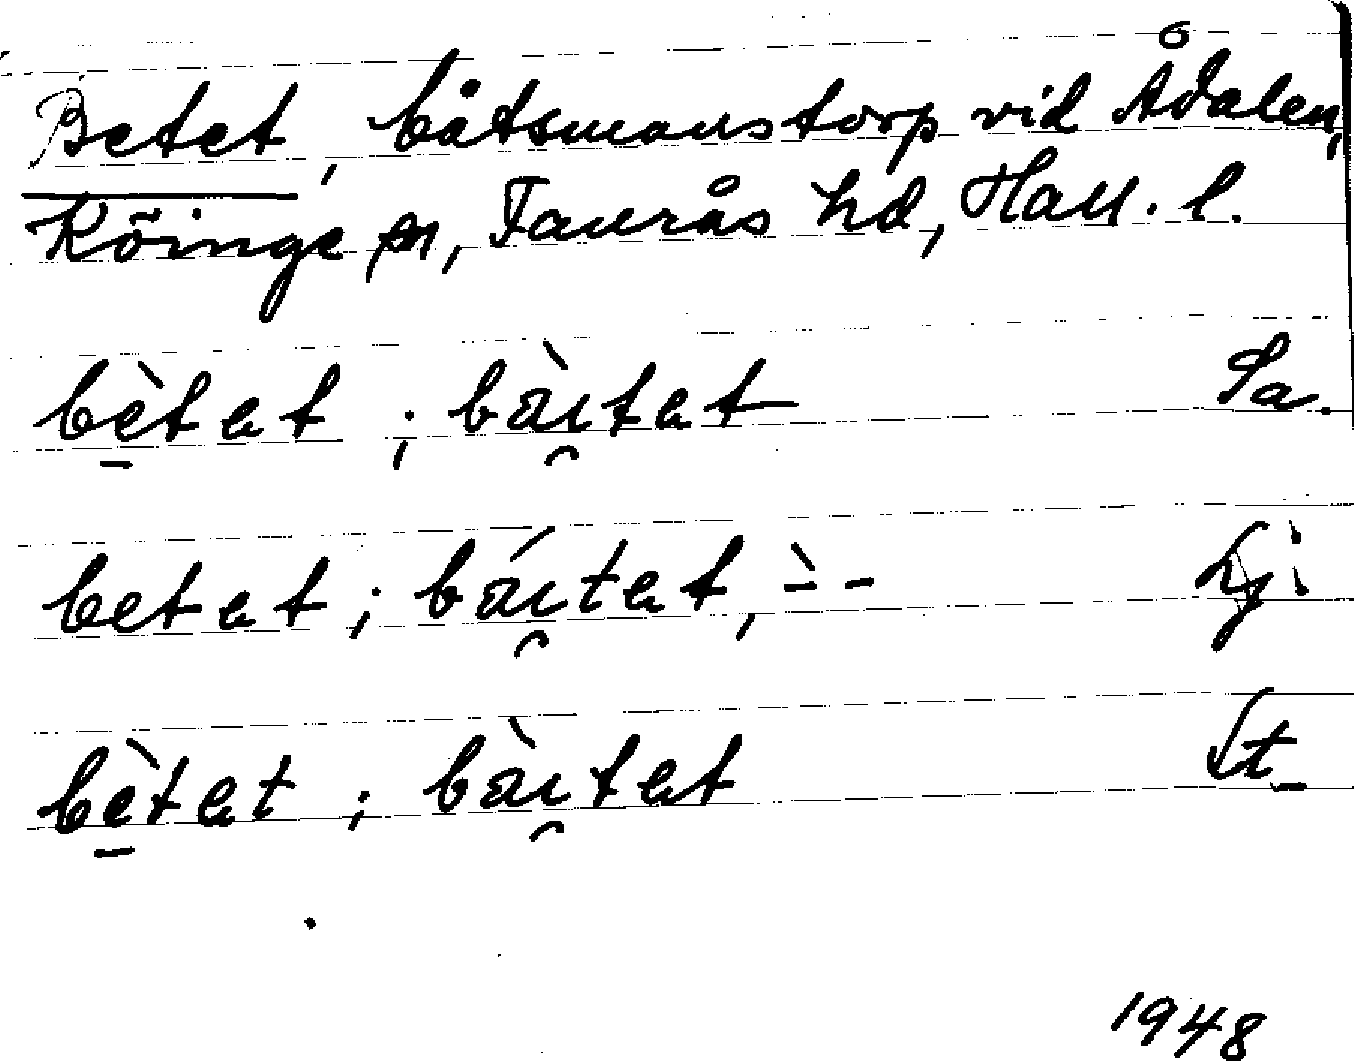 Betet, båtsmanstorp vid Ådalen,
Köinge sn, Faurås hd, Hall. l.
bètet ; bàıtet Sa.
betet ; báıtet, -̀ - Lj.
bètet ; bàıtet St
1948